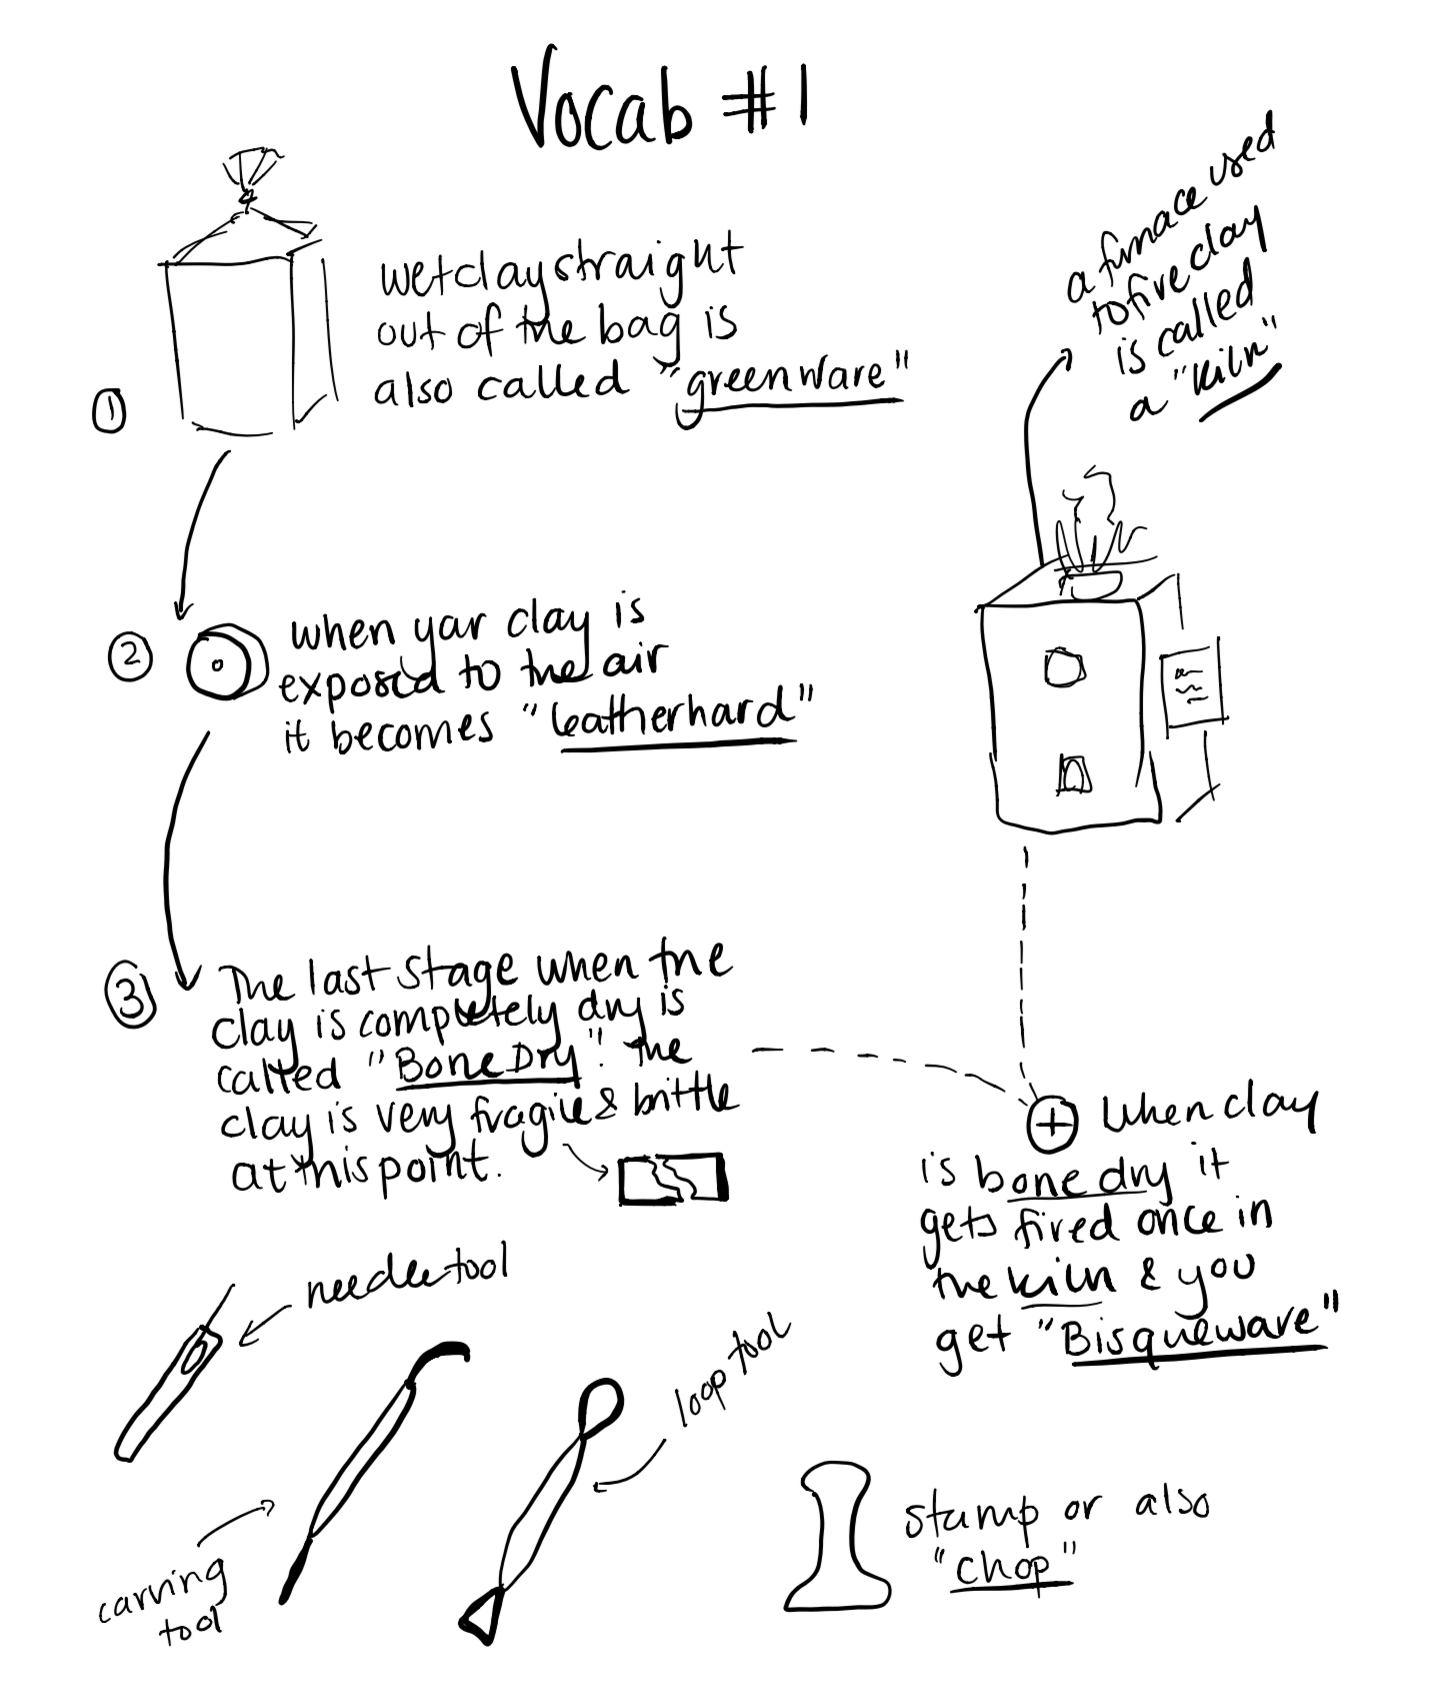 Vocab #1
wet clay straight
out of the bag is
also called "greenware"
a furnace used
to fire clay
is called
a "kiln"
1
2
when your clay is
exposed to the air
it becomes "leatherhard"
3
The last stage when the
clay is completely dry is
called "Bone Dry". The
clay is very fragile & brittle
at this point.
+ When clay
is bone dry it
gets fired once in
the kiln & you
get "Bisqueware"
needle tool
loop tool
carving
tool
stamp or also
"chop"